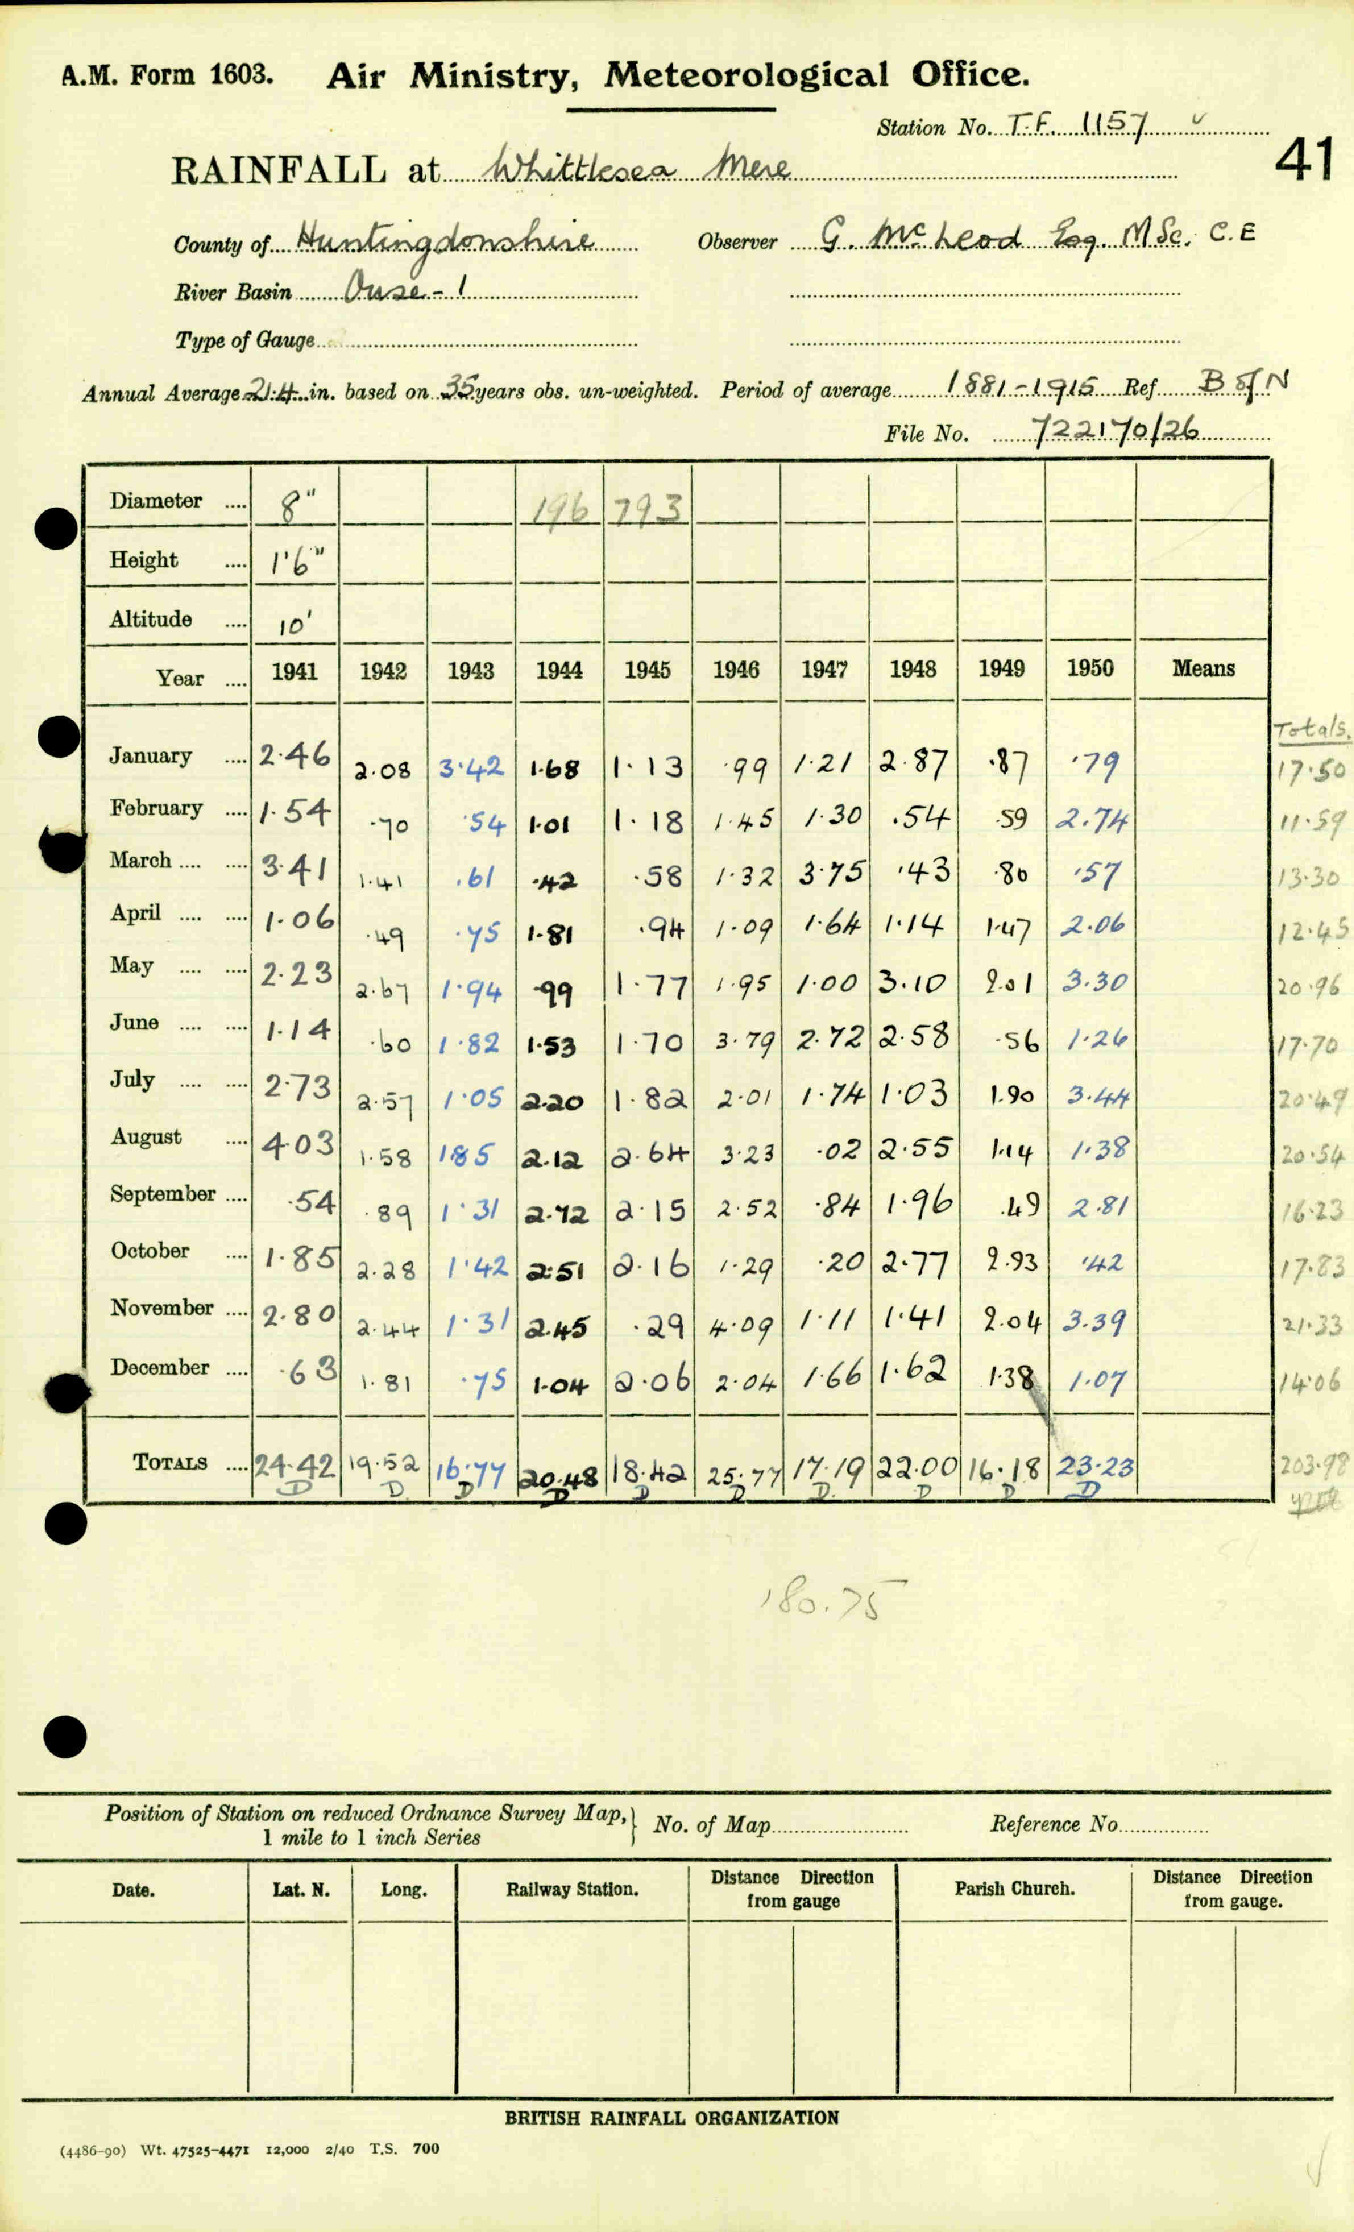 A.M. Form 1603. Air Ministry, Meteorological Office.
Station No. T.F. 1157
41
RAINFALL at Whittlesea Mere
County of Huntingdonshire Observer G. McLeod Esq. MSc. C.E
River Basin Ouse-1
Type of Gauge
Annual Average 21.4 in. based on 35 years obs. un-weighted. Period of average 1881-1915 Ref B of N
File No. 722170/26
Diameter .... 8" 196 793
Height .... 1'6"
Altitude .... 10'
Year .... 1941 1942 1943 1944 1945 1946 1947 1948 1949 1950 Means
Totals.
January .... 2.46 2.08 3.42 1.68 1.13 .99 1.21 2.87 .87 .79 17.50
February .... 1.54 .70 .54 1.01 1.18 1.45 1.30 .54 .59 2.74 11.59
March .... .... 3.41 1.41 .61 .42 .58 1.32 3.75 .43 .80 .57 13.30
April .... .... 1.06 .49 .75 1.81 .94 1.09 1.64 1.14 1.47 2.06 12.45
May .... .... 2.23 2.67 1.94 .99 1.77 1.95 1.00 3.10 2.01 3.30 20.96
June .... .... 1.14 .60 1.82 1.53 1.70 3.79 2.72 2.58 .56 1.26 17.70
July .... .... 2.73 2.57 1.05 2.20 1.82 2.01 1.74 1.03 1.90 3.44 20.49
August .... 4.03 1.58 1.85 2.12 2.64 3.23 .02 2.55 1.14 1.38 20.54
September .... .54 .89 1.31 2.72 2.15 2.52 .84 1.96 .49 2.81 16.23
October .... 1.85 2.28 1.42 2.51 2.16 1.29 .20 2.77 2.93 .42 17.83
November .... 2.80 2.44 1.31 2.45 .29 4.09 1.11 1.41 2.04 3.39 21.33
December .... .63 1.81 .75 1.04 2.06 2.04 1.66 1.62 1.38 1.07 14.06
TOTALS .... 24.42 19.52 16.77 20.48 18.42 25.77 17.19 22.00 16.18 23.23 203.98
D D D D D D D D D D
180.75
Position of Station on reduced Ordnance Survey Map, } No. of Map Reference No.
1 mile to 1 inch Series
Date. Lat. N. Long. Railway Station. Distance Direction from gauge Parish Church. Distance Direction from gauge.
BRITISH RAINFALL ORGANIZATION
(4486-90) Wt. 47525-4471 12,000 2/40 T.S. 700